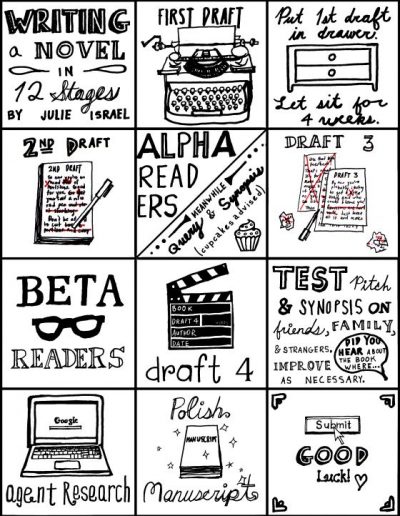 WRITING
a NOVEL
IN
12 Stages
BY JULIE ISRAEL
FIRST DRAFT
Put 1st draft
in drawer.
Let sit for
4 weeks.
2ND DRAFT
2ND DRAFT
ALPHA
READ
ERS
MEANWHILE
Query & Synopsis
(cupcakes advised)
DRAFT 3
DRAFT 3
BETA
READERS
BOOK
DRAFT 4
AUTHOR
DATE
draft 4
TEST Pitch
& SYNOPSIS ON
friends, FAMILY,
& STRANGERS.
IMPROVE
AS NECESSARY.
DID YOU
HEAR ABOUT
THE BOOK
WHERE...
Google
agent Research
Polish
MANUSCRIPT
Manuscript
Submit
GOOD
Luck!